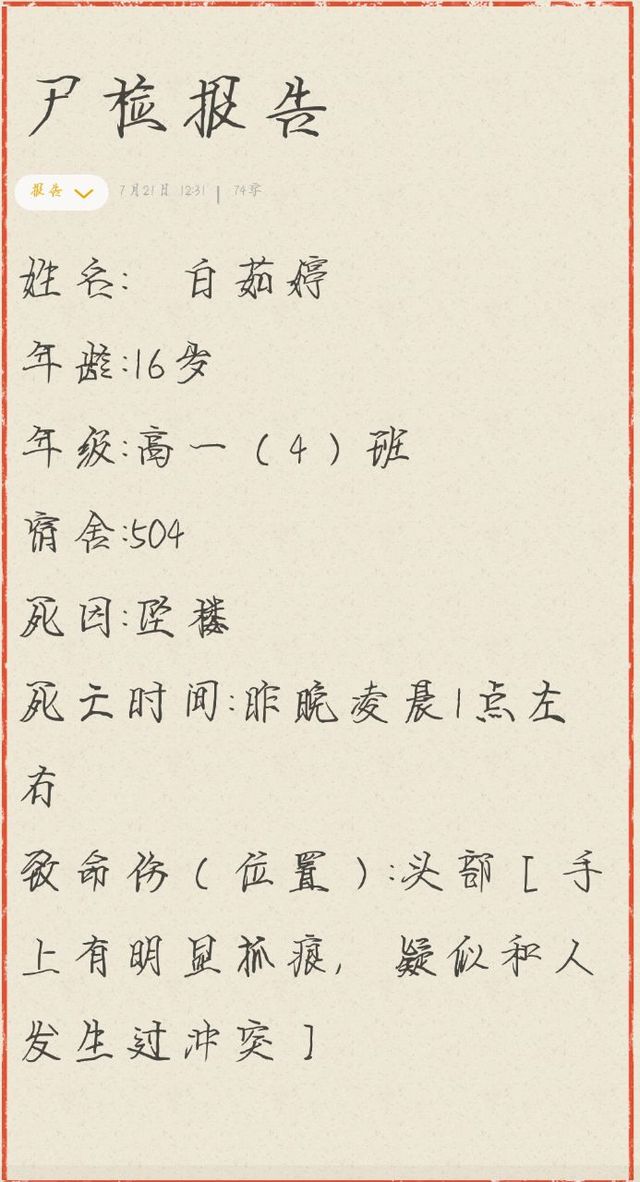 尸检报告
报告 7月21日 12:31 | 74字
姓名: 白茹婷
年龄:16岁
年级:高一(4)班
宿舍:504
死因:坠楼
死亡时间:昨晚凌晨1点左
右
致命伤(位置):头部[手
上有明显抓痕, 疑似和人
发生过冲突]